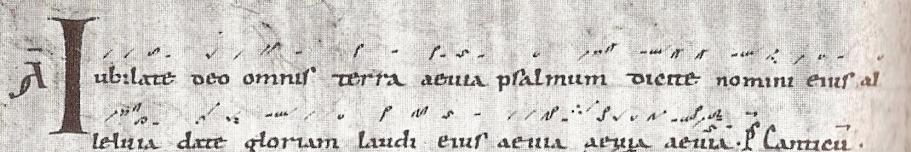 Ā Iubilate deo omnis terra aeuia psalmum dicite nomini eius al
leluia date gloriam laudi eius aeuia aeuia aeuia · P̄ Canticū ·